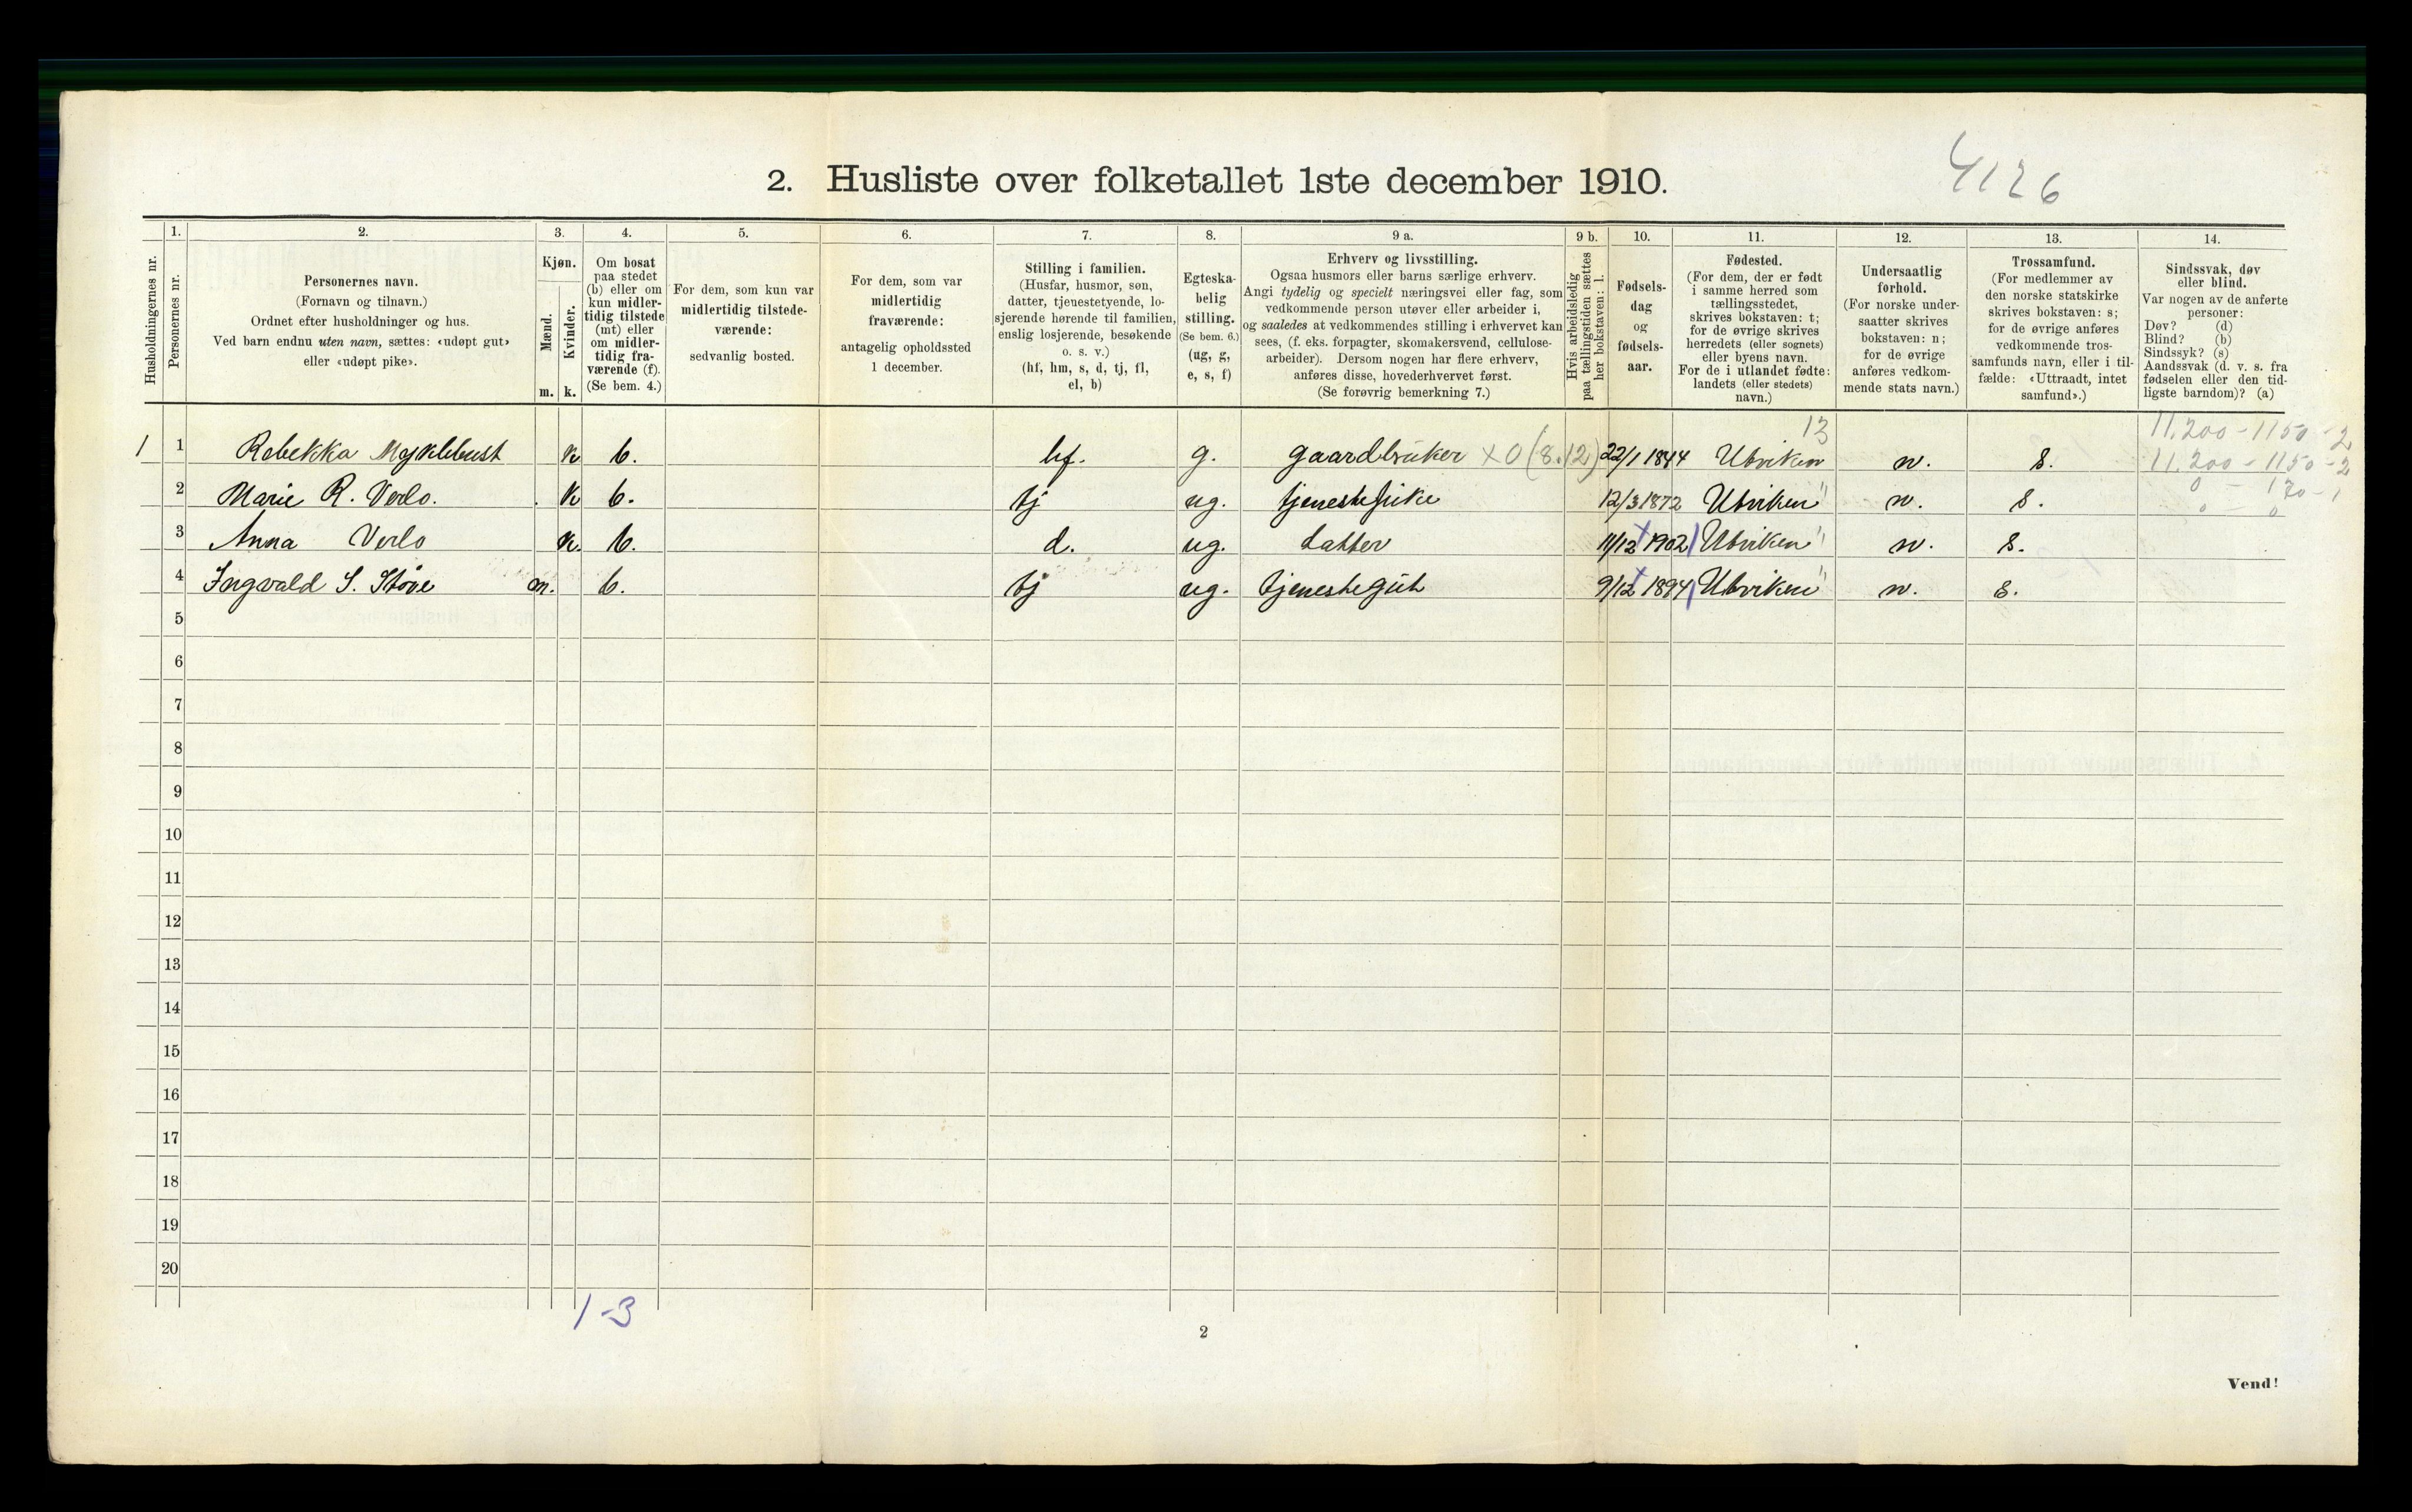 4126
2. Husliste over folketallet 1ste december 1910.
1. 2. 3. 4. 5. 6. 7. 8. 9 a. 9 b. 10. 11. 12. 13. 14.
Husholdningernes nr.
Personernes nr.
Personernes navn.
(Fornavn og tilnavn.)
Ordnet efter husholdninger og hus.
Ved barn endnu uten navn, sættes: «udøpt gut»
eller «udøpt pike».
Kjøn.
Mænd.
Kvinder.
m. k.
Om bosat
paa stedet
(b) eller om
kun midler-
tidig tilstede
(mt) eller
om midler-
tidig fra-
værende (f).
(Se bem. 4.)
For dem, som kun var
midlertidig tilstede-
værende:
sedvanlig bosted.
For dem, som var
midlertidig
fraværende:
antagelig opholdssted
1 december.
Stilling i familien.
(Husfar, husmor, søn,
datter, tjenestetyende, lo-
sjerende hørende til familien,
enslig losjerende, besøkende
o. s. v.)
(hf, hm, s, d, tj, fl,
el, b)
Egteska-
belig
stilling.
(Se bem. 6.)
(ug, g,
e, s, f)
Erhverv og livsstilling.
Ogsaa husmors eller barns særlige erhverv.
Angi tydelig og specielt næringsvei eller fag, som
vedkommende person utøver eller arbeider i,
og saaledes at vedkommendes stilling i erhvervet kan
sees, (f. eks. forpagter, skomakersvend, cellulose-
arbeider). Dersom nogen har flere erhverv,
anføres disse, hovederhvervet først.
(Se forøvrig bemerkning 7.)
Hvis arbeidsledig
paa tællingstiden sættes
her bokstaven: l.
Fødsels-
dag
og
fødsels-
aar.
Fødested.
(For dem, der er født
i samme herred som
tællingsstedet,
skrives bokstaven: t;
for de øvrige skrives
herredets (eller sognets)
eller byens navn.
For de i utlandet fødte:
landets (eller stedets)
navn.)
Undersaatlig
forhold.
(For norske under-
saatter skrives
bokstaven: n;
for de øvrige
anføres vedkom-
mende stats navn.)
Trossamfund.
(For medlemmer av
den norske statskirke
skrives bokstaven: s;
for de øvrige anføres
vedkommende tros-
samfunds navn, eller i til-
fælde: «Uttraadt, intet
samfund».)
Sindssvak, døv
eller blind.
Var nogen av de anførte
personer:
Døv? (d)
Blind? (b)
Sindssyk? (s)
Aandssvak (d. v. s. fra
fødselen eller den tid-
ligste barndom)? (a)
13 11.200 - 1150 - 2
1 1 Rebekka Myklebust k b. hf. g. gaardbruker x 0 (8.12) 22/1 1844 Utviken n. s. 11.200 - 1150 - 2
2 Marie R. Verlo. k b. tj ug. tjenestepike 12/3 1872 Utviken " n. s.
3 Anna Verlo k. b. d. ug. Datter 11/12 1902 Utviken " n. s.
4 Ingvald S. Støve m. b. tj ug. tjenestegut 9/12 1894 Utviken " n. s.
5
6
7
8
9
10
11
12
13
14
15
16
17
18
19
20
1-3
2
Vend!